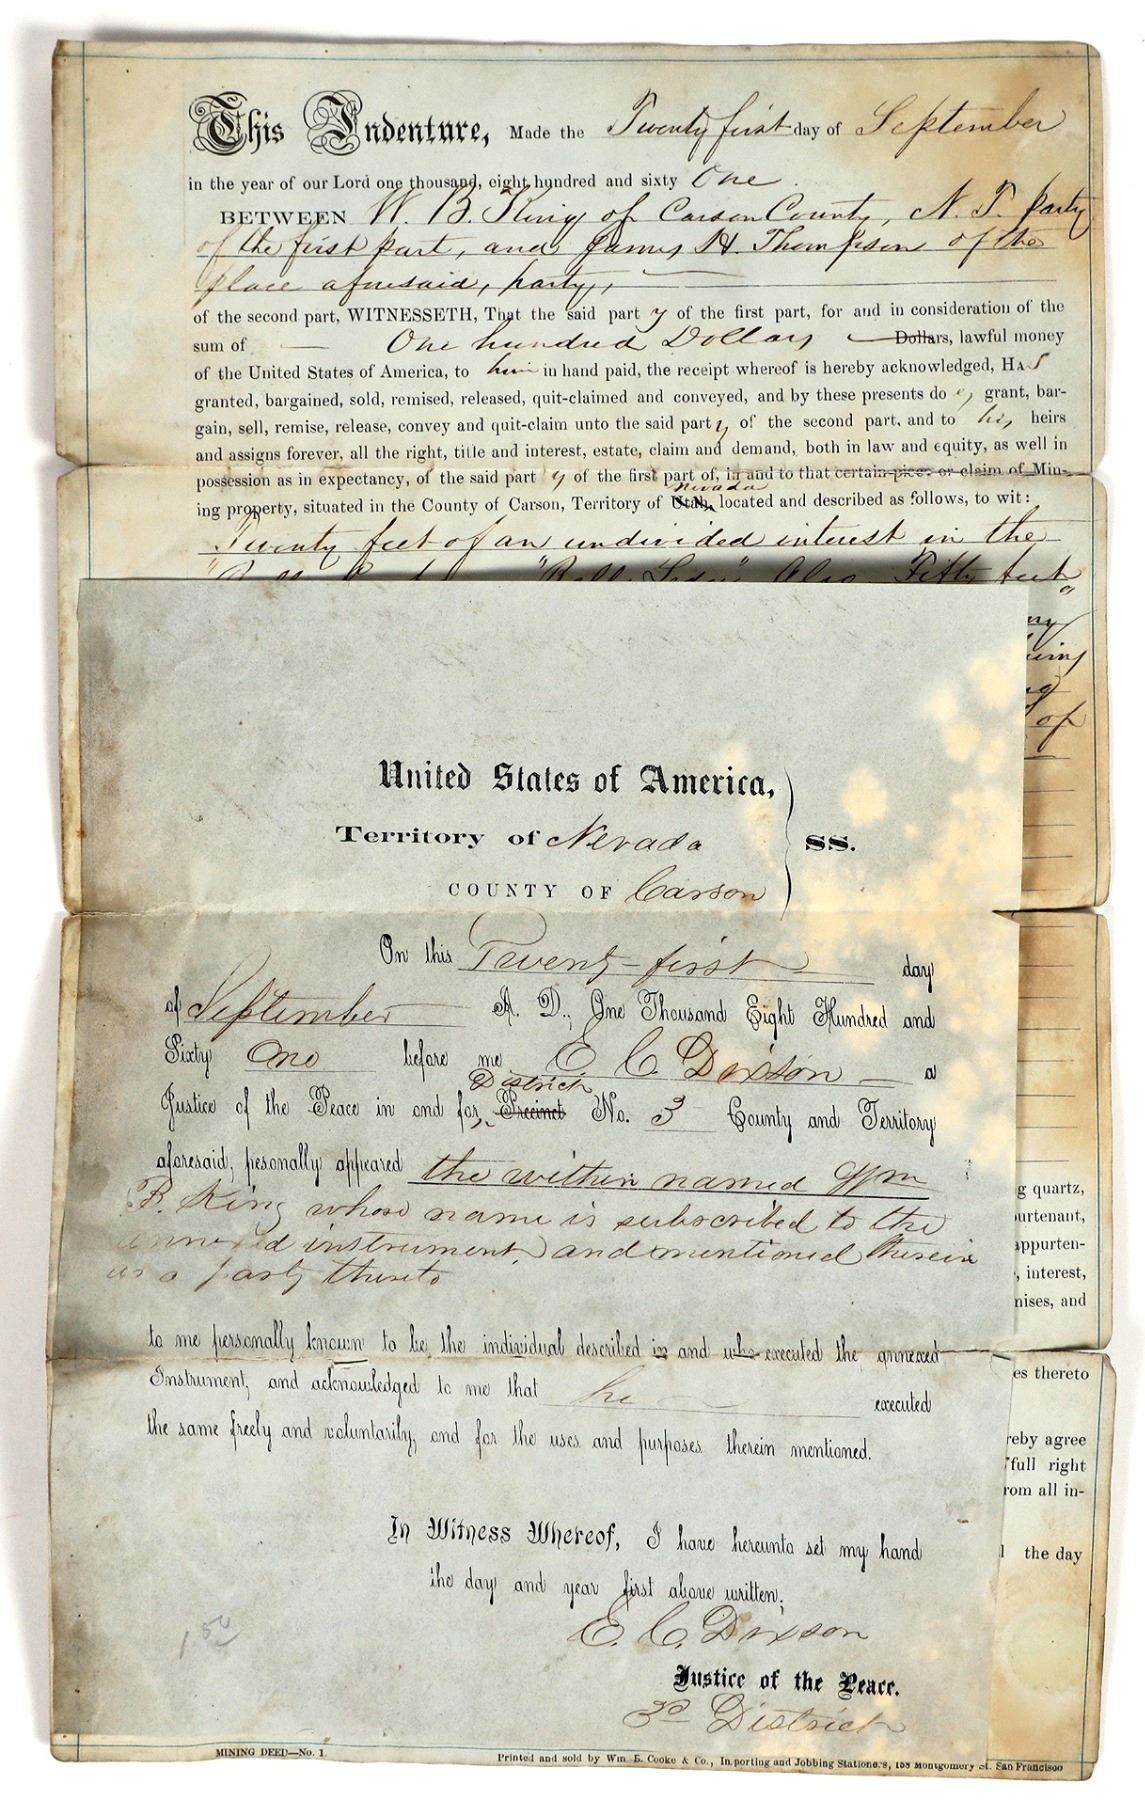 This Indenture, Made the Twenty first day of September
in the year of our Lord one thousand, eight hundred and sixty One
BETWEEN W. B. King of Carson County, N. T. party
of the first part, and James H. Thompson of the
place aforesaid, party,
of the second part, WITNESSETH, That the said party of the first part, for and in consideration of the
sum of One hundred Dollars Dollars, lawful money
of the United States of America, to him in hand paid, the receipt whereof is hereby acknowledged, HAS
granted, bargained, sold, remised, released, quit-claimed and conveyed, and by these presents does grant, bar-
gain, sell, remise, release, convey and quit-claim unto the said party of the second part, and to his heirs
and assigns forever, all the right, title and interest, estate, claim and demand, both in law and equity, as well in
possession as in expectancy, of the said party of the first part of, in and to that certain piece or claim of Min-
Nevada
ing property, situated in the County of Carson, Territory of Utah, located and described as follows, to wit:
Twenty feet of an undivided interest in the
Also Fifty feet
of
United States of America,
Territory of Nevada SS.
COUNTY OF Carson
On this Twenty-first day
of September A. D., One Thousand Eight Hundred and
Sixty One before me E. C. Dixson a
District
Justice of the Peace in and for Precinct No. 3 County and Territory
aforesaid, pesonally appeared the within named Wm
B. King whose name is subscribed to the
annexed instrument and mentioned therein
as a party thereto
to me personally known to be the individual described in and who executed the annexed
Instrument, and acknowledged to me that he executed
the same freely and voluntarily, and for the uses and purposes therein mentioned.
In Witness Whereof, I have hereunto set my hand
the day and year first above written.
E. C. Dixson
Justice of the Peace.
3d District
1 50
g quartz,
urtenant,
appurten-
, interest,
mises, and
es thereto
reby agree
full right
rom all in-
the day
MINING DEED—No. 1.
Printed and sold by Wm B. Cooke & Co., Importing and Jobbing Stationers, 155 Montgomery St. San Francisco